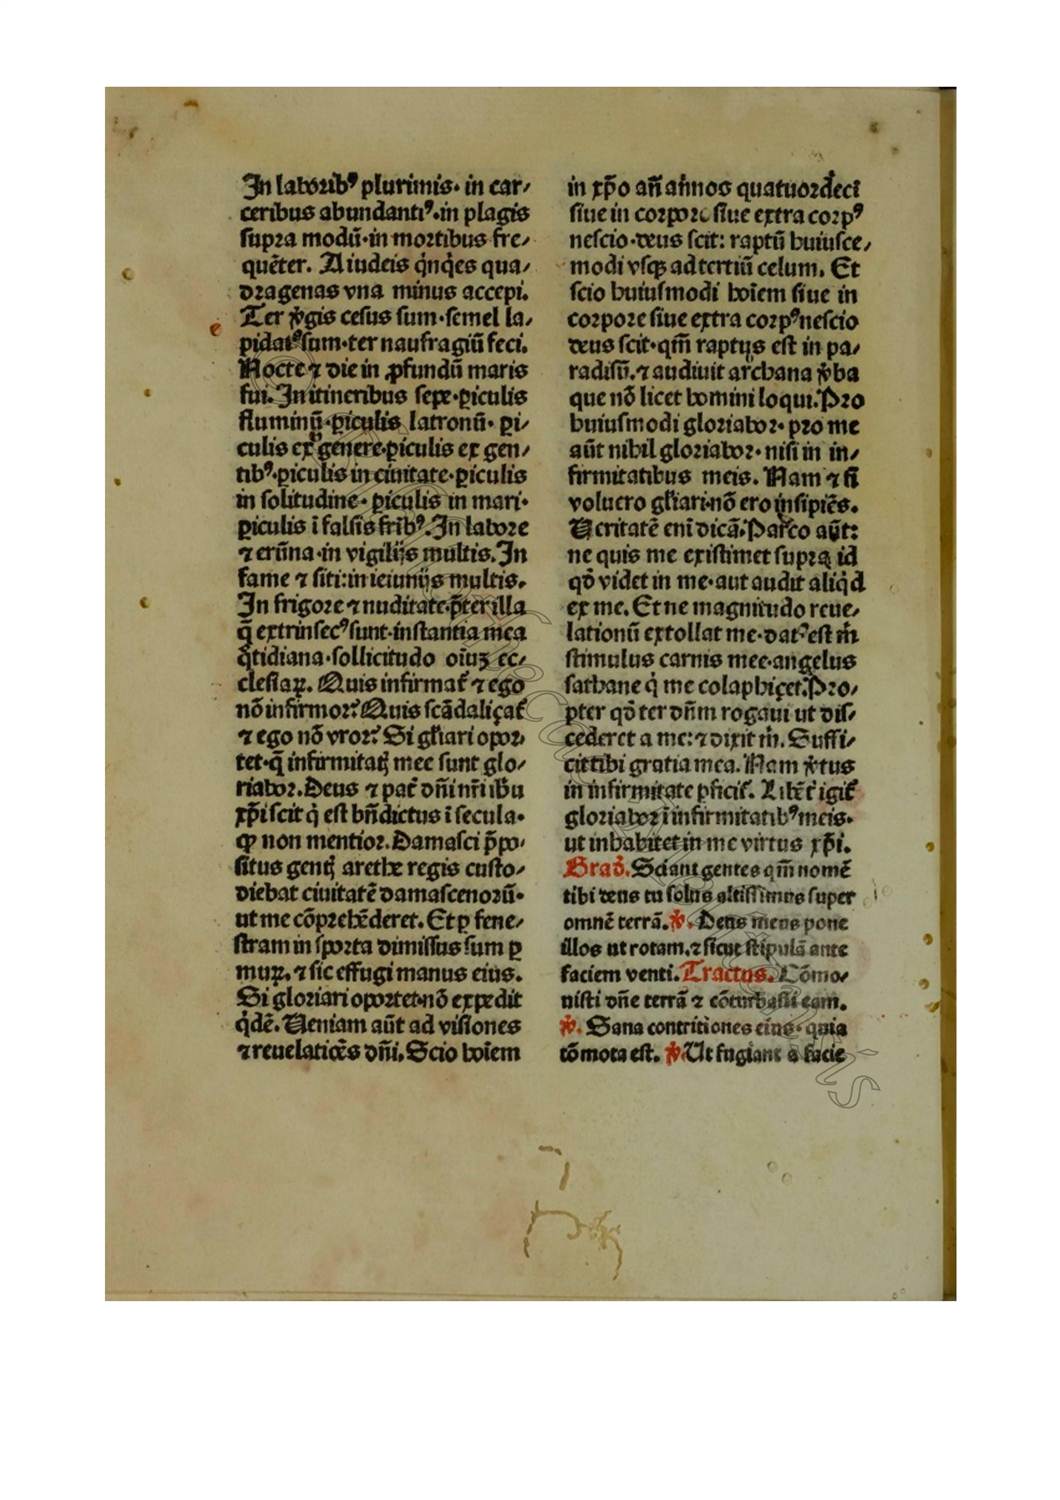 In laborib⁹ plurimis· in car⸗
ceribus abundanti⁹·in plagis
supra modū·in mortibus fre⸗
quēter. A iudeis q̇nq̇es qua⸗
dragenas vna minus accepi.
Ter v̇gis cesus sum·semel la⸗
pidat⁹sum·ter naufragiū feci.
Nocte ⁊ die in ꝓfundū maris
fui. In itineribus sepe·ꝑiculis
fluminū·ꝑiculis latronū· ꝑi⸗
culis ex genere·ꝑiculis ex gen⸗
tib⁹·ꝑiculis in ciuitate·ꝑiculis
in solitudine· ꝑiculis in mari·
ꝑiculis ī falsis fr̄ib⁹. In labore
⁊ erūna·in vigilijs multis. In
fame ⁊ siti: in ieiunijs multis.
In frigore ⁊ nuditate·p̄ter illa
q̄ extrinsec⁹ sunt·instantia mea
q̇tidiana·sollicitudo oīuꝫ ec⸗
clesiaꝝ. Quis infirmat᷑ ⁊ ego
nō infirmor? Quis scādaliçat᷑
⁊ ego nō vror? Si gl̄iari opor⸗
tet·q̄ infirmitatꝭ mee sunt glo⸗
riabor. Deus ⁊ pat᷑ dn̄i nr̄i ih̄u
xp̄i scit q̇ est bn̄dictus ī secula·
ꝙ non mentior. Damasci p̄po⸗
situs gentꝭ arethe regis custo⸗
diebat ciuitatē damascenorū·
ut me cōprehēderet. Et ꝑ fene⸗
stram in sporta dimissus sum ꝑ
muꝝ. ⁊ sic effugi manus eius.
Si gloriari oportet·nō expedit
q̇dē. Ueniam aūt ad visiones
⁊ reuelatiōes dn̄i. Scio hoīem
in xp̄o an̄ annos quatuordecī
siue in corpore siue extra corp⁹
nescio·deus scit: raptū huiusce⸗
modi vsqꝫ ad tertiū celum. Et
scio huiusmodi hoīem siue in
corpore siue extra corp⁹ nescio
deus scit·qm̄ raptus est in pa⸗
radisū.⁊ audiuit archana v̇ba
que nō licet homini loqui. Pro
huiusmodi gloriabor· pro me
aūt nihil gloriabor· nisi in in⸗
firmitatibus meis. Nam ⁊ si
voluero gl̄iari·nō ero insipiēs.
Ueritatē enī dicā. Parco aūt:
ne quis me existimet supra id
qḋ videt in me·aut audit aliq̇d
ex me. Et ne magnitudo reue⸗
lationū extollat me·dat⁹ est m̄
stimulus carnis mee·angelus
sathane q̇ me colaphiçet. Pro⸗
pter qḋ ter dn̄m rogaui ut dis⸗
cederet a me: ⁊ dixit m̄. Suffi⸗
cit tibi gratia mea. Nam v̇tus
in infirmitate ꝑficit᷑. Libēt᷑ igit᷑
gloriabor ī infirmitatib⁹ meis·
ut inhabitet in me virtus xp̄i.
Grad̄. Sciant gentes qm̄ nomē
tibi deus tu solus altissimus super
omnē terrā. ℣. Deus meus pone
illos ut rotam.⁊ sicut stipulā ante
faciem venti. Tractus. Cōmo⸗
uisti dn̄e terrā ⁊ cōturbasti eam.
℣. Sana contritiones eius· quia
cōmota est. ℣. Ut fugiant a facie
e